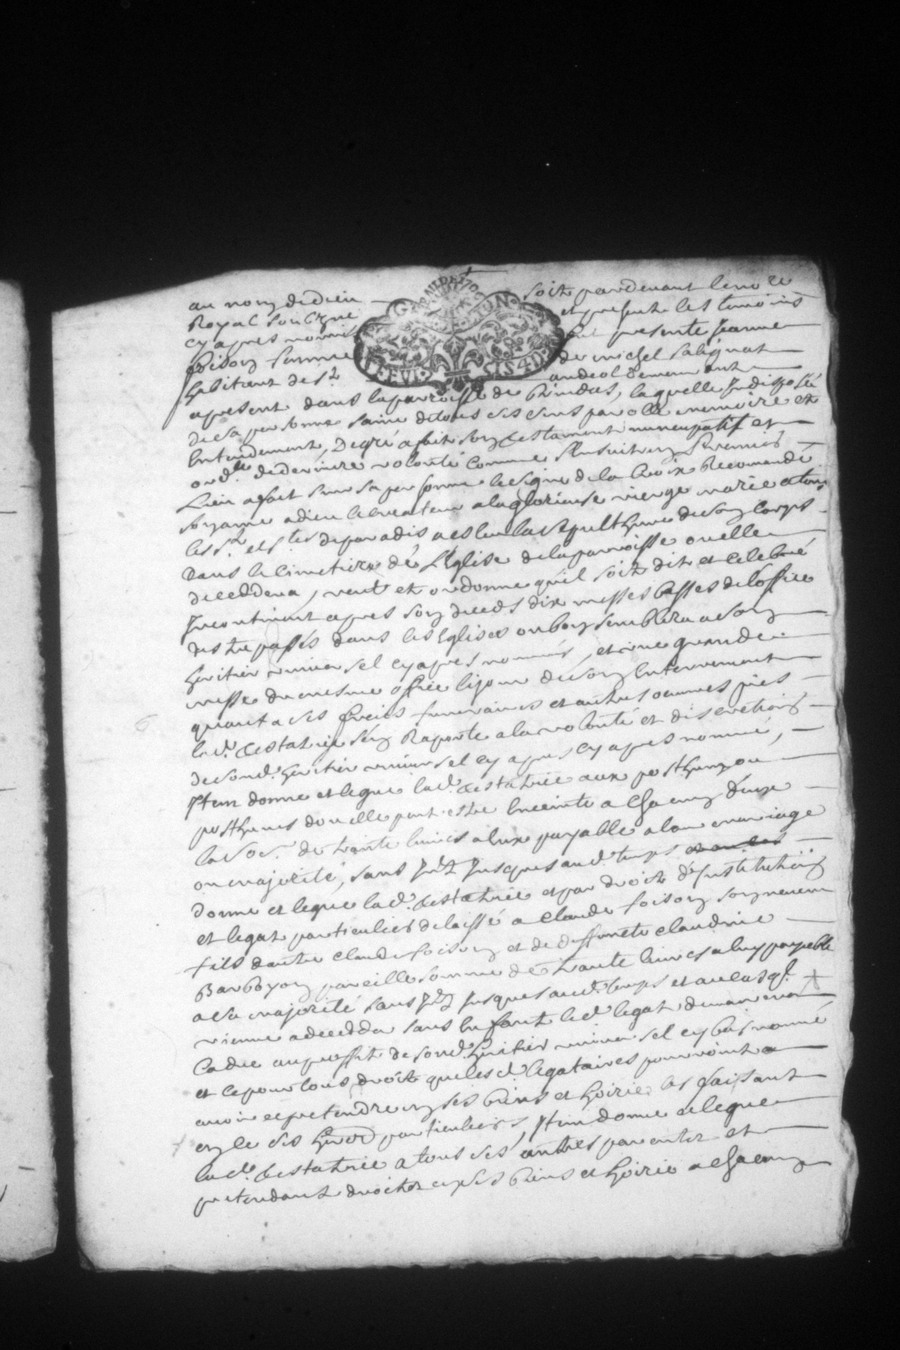 au nom de dieu soit pardevant le no.re
Royal soubzigné et present les temoins
cy apres nommés fut presente Jeanne
foison femme de michel salignat
habitant de st andeol demeurant
apresent dans la parroisse de laquelle Indisposée
de sa personne saine de tous ses sens parolle memoire et
Entendement, De gré a fait son testament nuncupatif et
ord.re de derniere volonté comme sensuit en premier
lieu a fait sur sa personne le signe de la Croix Recomandé
son ame a dieu le createur a la glorieuse vierge marie a tous
les s.ts et s.tes de paradis a esleu la sepulthure de son Corps
dans le Cimetiere de L'Eglise de la parroisse ou elle
deceddera, veut et ordonne qu'il soit dit et celebré
Incontinent apres son deceds dix messes basses de l'office
des trepassés dans les Eglises ou bon semblera a son
heritier universel cy apres nommé, et une grande
messe du mesme office le jour de son Enterrement
quant a ses freids funeraires et autres oeuvres pies
la d. testatrice sen Raporte a la volonté et discretion
de son d. heritier universel cy apres cy apres nommé,
Item donne et legue la d. testatrice aux posthume ou
posthumes dont elle peut estre Enceinte a Chacun d'eux
la so.e de trente livres a eux payable a leur mariage
ou majorité, sans In.t Jusques aud. temps
donne et legue la d. testatrice et par droit d'Institution
et legat particulier delaissé a Claude foison
fils d'autre Claude foison et de deffunte claudine
Barboyon pareille somme de trente livres a luy payable
a sa majorité sans In.t Jusques aud. temps et au cas q.l
vienne a decedder sans Enfant led. legat demeurera
Caduc au proffit de son d. heritier universel cy bas nommé
et ce pour tous droits que lesd. legataires pourroint
avoir et pretendre en ses biens et hoirie les faisant
en ce ses hered. particuliers, Item donne et legue
la d. testatrice a tous ses autres parentz et
pretendant droitz en ses biens et hoirie a Chacun